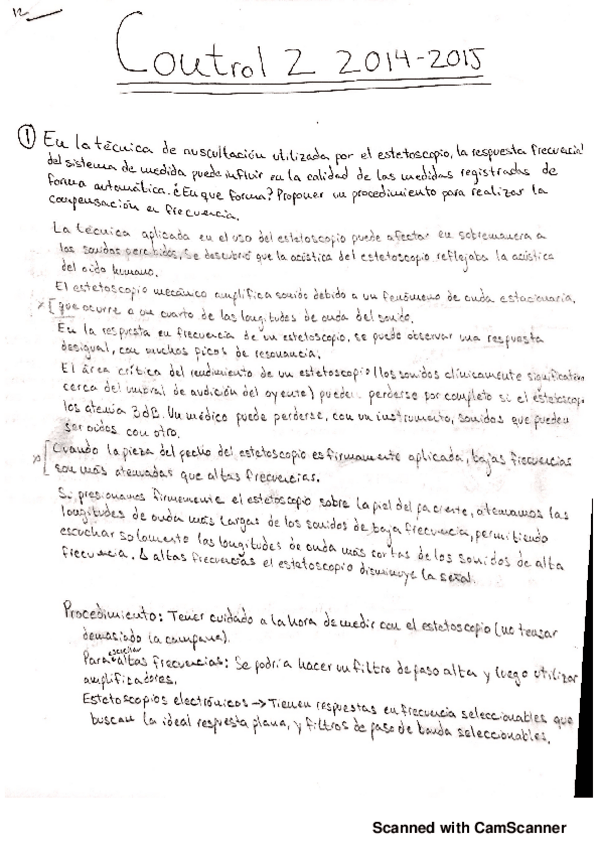 12
Control 2 2014-2015
① En la técnica de auscultación utilizada por el estetoscopio, la respuesta frecuencial
del sistema de medida puede influir en la calidad de las medidas registradas de
forma automática. ¿En que forma? Proponer un procedimiento para realizar la
compensación en frecuencia.
La técnica aplicada en el uso del estetoscopio puede afectar en sobremanera a
los sonidos percibidos. Se descubrió que la acústica del estetoscopio reflejaba la acústica
del oído humano.
El estetoscopio mecánico amplifica sonido debido a un fenómeno de onda estacionaria,
x [ que ocurre a un cuarto de las longitudes de onda del sonido.
En la respuesta en frecuencia de un estetoscopio, se puede observar una respuesta
desigual, con muchos picos de resonancia.
El área crítica del rendimiento de un estetoscopio (los sonidos clínicamente significativo
cerca del umbral de audición del oyente) pueden perderse por completo si el estetoscop.
los atenúa 3dB. Un médico puede perderse, con un instrumento, sonidos que pueden
ser oídos con otro.
x [ Cuando la pieza del pecho del estetoscopio es firmamente aplicada, bajas frecuencias
son más atenuadas que altas frecuencias.
Si presionamos firmemente el estetoscopio sobre la piel del paciente, atenuamos las
longitudes de onda más largas de los sonidos de baja frecuencia, permitiendo
escuchar solamente las longitudes de onda más cortas de los sonidos de alta
frecuencia. A altas frecuencias el estetoscopio disminuye la señal.
Procedimiento: Tener cuidado a la hora de medir con el estetoscopio (no tensar
demasiado la campana).
Para escuchar altas frecuencias: Se podría hacer un filtro de paso alta y luego utilizar
amplificadores.
Estetoscopios electrónicos → Tienen respuestas en frecuencia seleccionables que
buscan la ideal respuesta plana, y filtros de paso de banda seleccionables.
Scanned with CamScanner